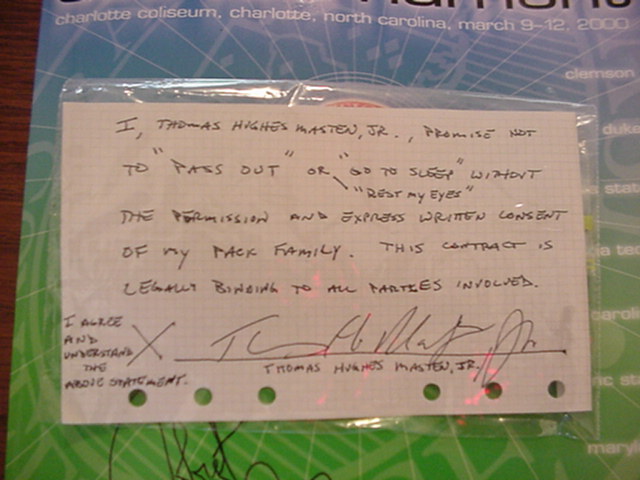 charlotte coliseum, charlotte, north carolina, march 9-12, 2000
clemson
duke
I, THOMAS HUGHES MASTEN, JR., PROMISE NOT
TO "PASS OUT" OR "GO TO SLEEP" WITHOUT
"REST MY EYES"
THE PERMISSION AND EXPRESS WRITTEN CONSENT
OF MY PACK FAMILY. THIS CONTRACT IS
LEGALLY BINDING TO ALL PARTIES INVOLVED.
I AGREE
AND
UNDERSTAND
THE
ABOVE STATEMENT.
X
THOMAS HUGHES MASTEN, JR.